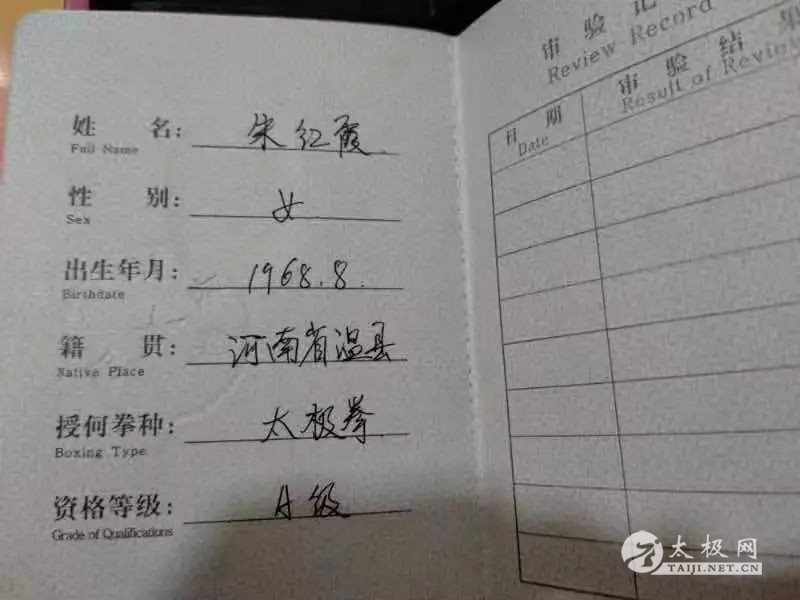 姓 名: 朱红霞
Full Name
性 别: 女
Sex
出生年月: 1968.8.
Birthdate
籍 贯: 河南省温县
Native Place
授何拳种: 太极拳
Boxing Type
资格等级: A级
Grade of Qualifications
审 验 记
Review Record
日 期
Date
审 验 结
Result of Review
太极网
TAIJI.NET.CN